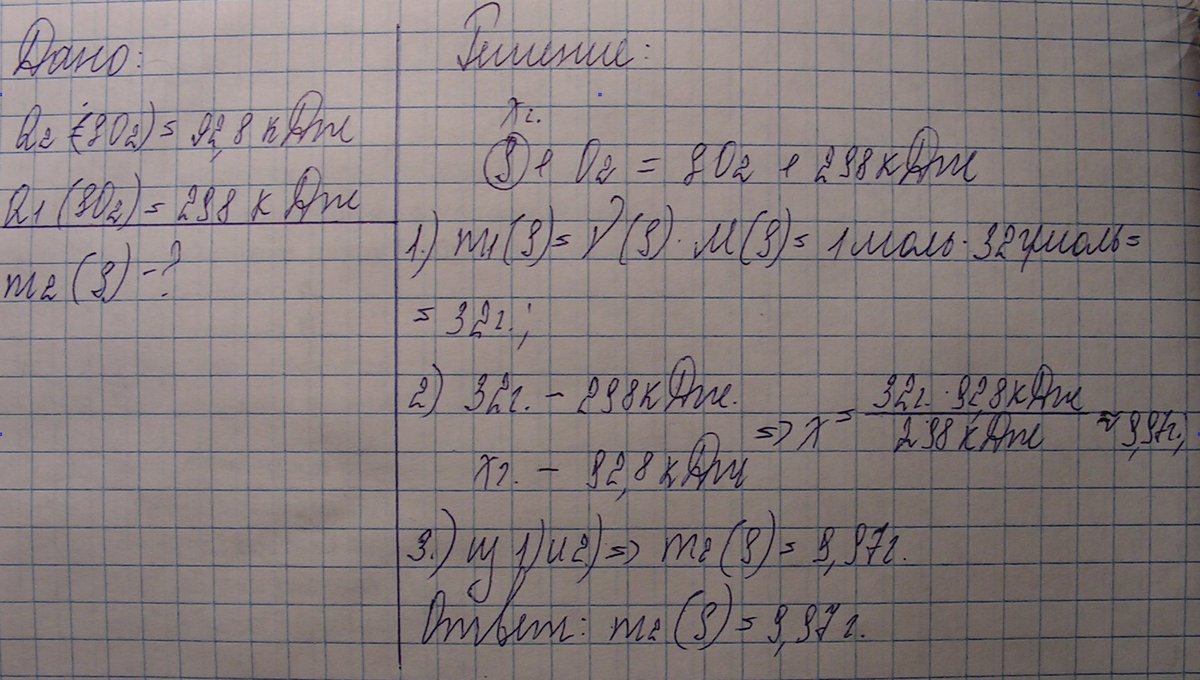 Дано:
Q2 (SO2) = 92,8 кДж
Q1 (SO2) = 298 кДж
m2 (S) - ?
Решение:
xг.
S + O2 = SO2 + 298 кДж
1.) m1(S) = ν(S) · M(S) = 1 моль · 32 г/моль =
= 32 г.;
2) 32 г. - 298 кДж.
xг. - 92,8 кДж
=> x = 32 г. · 92,8 кДж / 298 кДж ≈ 9,97 г.;
3.) из 1) и 2) => m2 (S) = 9,97 г.
Ответ: m2 (S) = 9,97 г.